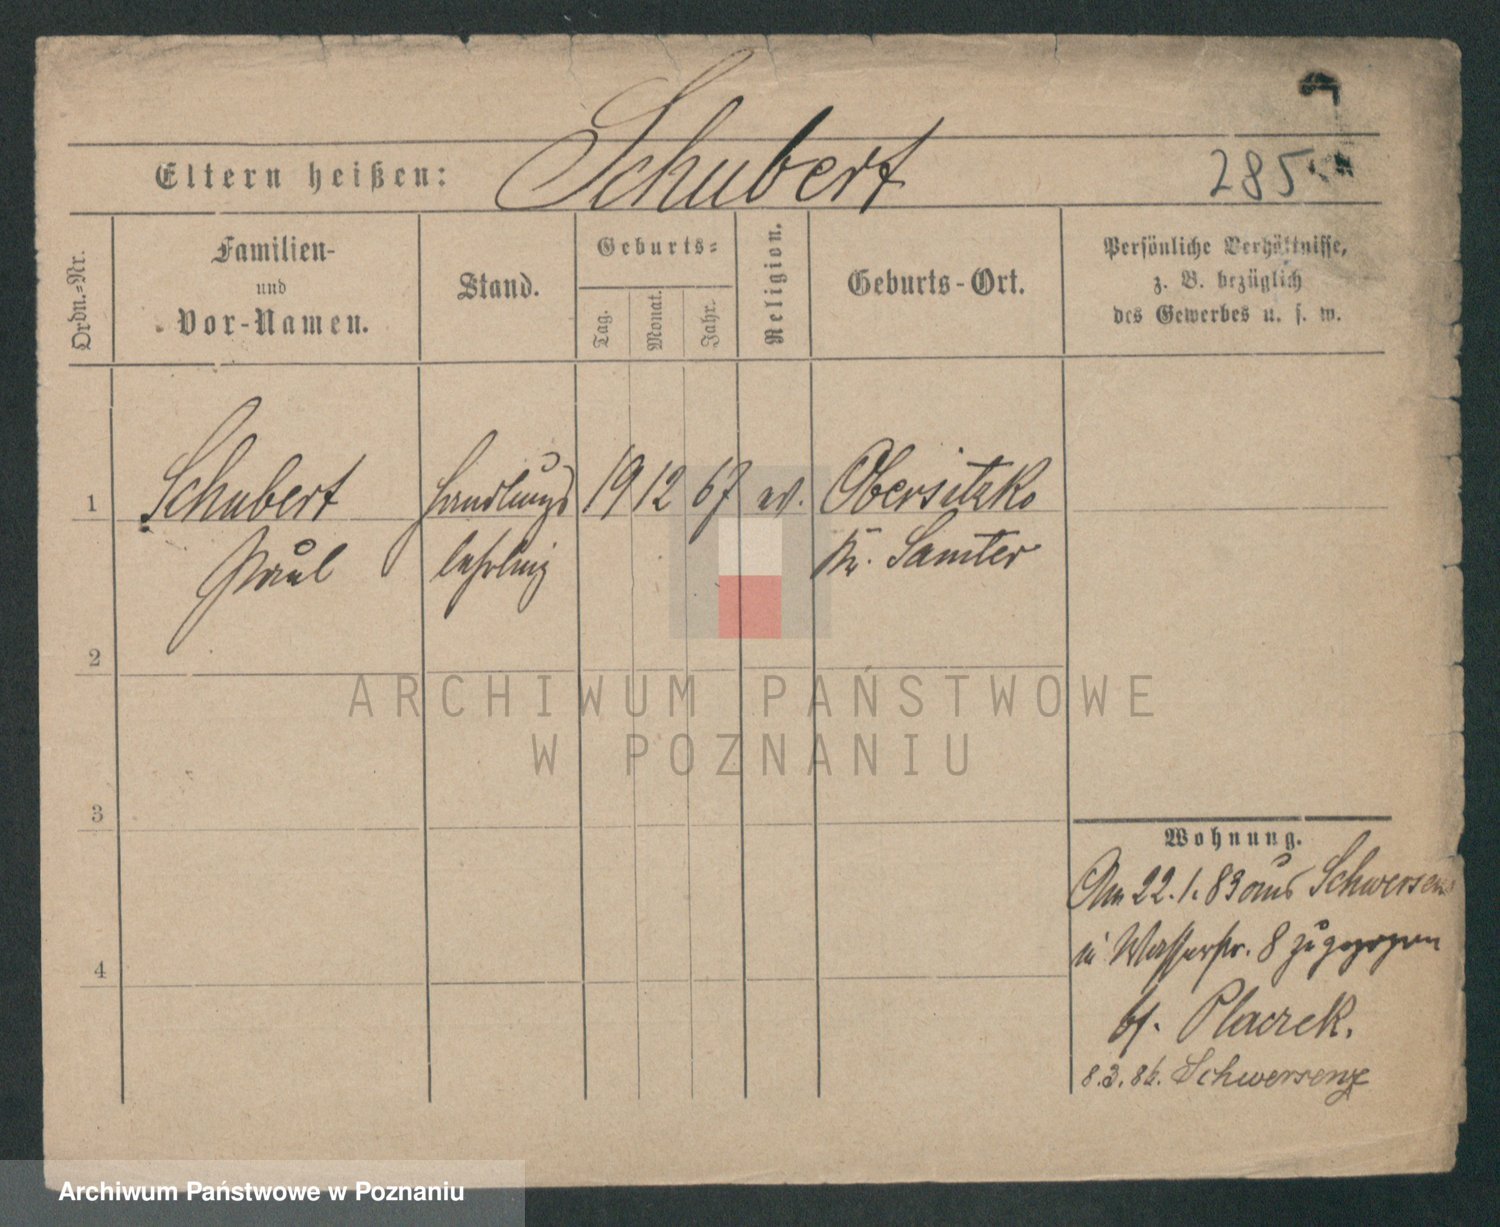 Schubert
285
Eltern heißen:
Ordn.-Nr.
Familien-
und
Vor-Namen.
Stand.
Geburts-
Tag.
Monat.
Jahr.
Religion.
Geburts-Ort.
Persönliche Verhältnisse,
z. B. bezüglich
des Gewerbes u. s. w.
1
Schubert
Paul
Handlungs
lehrling
19 12 67
ev.
Obersitzko
Kr. Samter
2
3
4
ARCHIWUM PAŃSTWOWE
W POZNANIU
Wohnung.
Am 22.1.83 aus Schwersenz
in Wasserstr. 8 zugezogen
bf. Placzek.
8.3.86. Schwersenz
Archiwum Państwowe w Poznaniu